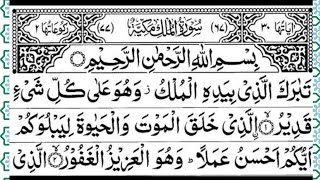 اٰیَاتُهَا ۳۰ (۶۷) سُوْرَةُ الْمُلْكِ مَكِّیَّةٌ (۷۷) رُكُوْعَاتُهَا ۲
بِسْمِ اللّٰهِ الرَّحْمٰنِ الرَّحِیْمِ
تَبٰرَكَ الَّذِیْ بِیَدِهِ الْمُلْكُ ز وَهُوَ عَلٰی كُلِّ شَیْءٍ
قَدِیْرُ ۙ﴿۱﴾ اِۨلَّذِیْ خَلَقَ الْمَوْتَ وَالْحَیٰوةَ لِیَبْلُوَكُمْ
اَیُّكُمْ اَحْسَنُ عَمَلًا ؕ وَهُوَ الْعَزِیْزُ الْغَفُوْرُ ۙ﴿۲﴾ الَّذِیْ